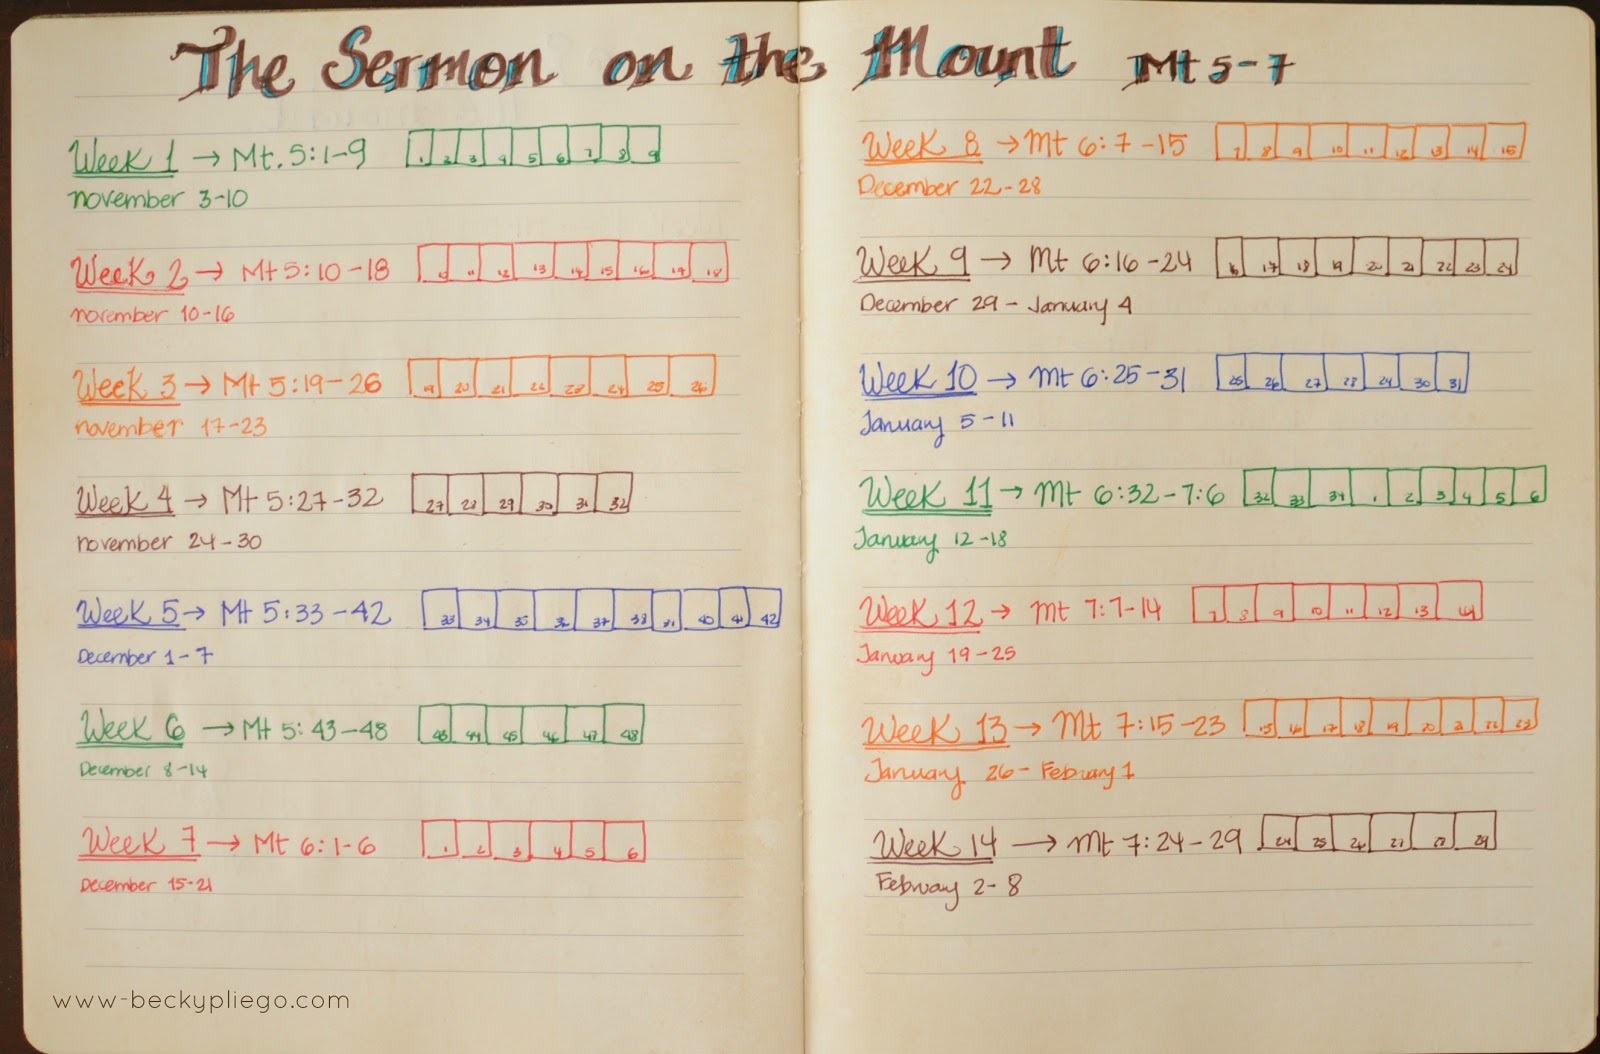 The Sermon on the Mount Mt 5-7
Week 1 → Mt. 5:1-9 1 2 3 4 5 6 7 8 9
november 3-10
Week 2 → Mt 5:10-18 10 11 12 13 14 15 16 17 18
november 10-16
Week 3 → Mt 5:19-26 19 20 21 22 23 24 25 26
november 17-23
Week 4 → Mt 5:27-32 27 28 29 30 31 32
november 24-30
Week 5 → Mt 5:33-42 33 34 35 36 37 38 39 40 41 42
December 1-7
Week 6 → Mt 5:43-48 43 44 45 46 47 48
December 8-14
Week 7 → Mt 6:1-6 1 2 3 4 5 6
December 15-21
www-beckypliego.com
Week 8 → Mt 6:7-15 7 8 9 10 11 12 13 14 15
December 22-28
Week 9 → Mt 6:16-24 16 17 18 19 20 21 22 23 24
December 29 - January 4
Week 10 → Mt 6:25-31 25 26 27 28 29 30 31
January 5-11
Week 11 → Mt 6:32-7:6 32 33 34 1 2 3 4 5 6
January 12-18
Week 12 → Mt 7:7-14 7 8 9 10 11 12 13 14
January 19-25
Week 13 → Mt 7:15-23 15 16 17 18 19 20 21 22 23
January 26 - February 1
Week 14 → Mt 7:24-29 24 25 26 27 28 29
February 2-8